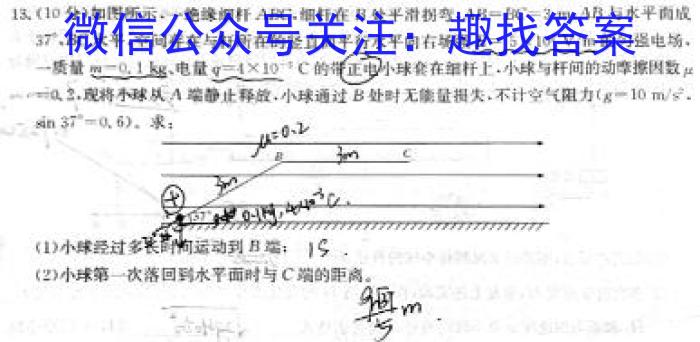 13.(10分)如图所示,一绝缘细杆ABC,细杆在B处平滑拐弯,AB=BC=3m,AB与水平面成
37°,
微信公众号关注：趣找答案
强电场,
一质量m=0.1kg,电量q=4×10⁻³C的带正电小球套在细杆上,小球与杆间的动摩擦因数μ
=0.2,现将小球从A端静止释放,小球通过B处时无能量损失,不计空气阻力(g=10m/s²,
sin37°=0.6)。求:
μ=0.2
B 3m C
3m
+
37° 0.1kg, 4×10⁻³C.
(1)小球经过多长时间运动到B端; 1S
(2)小球第一次落回到水平面时与C端的距离。
m.